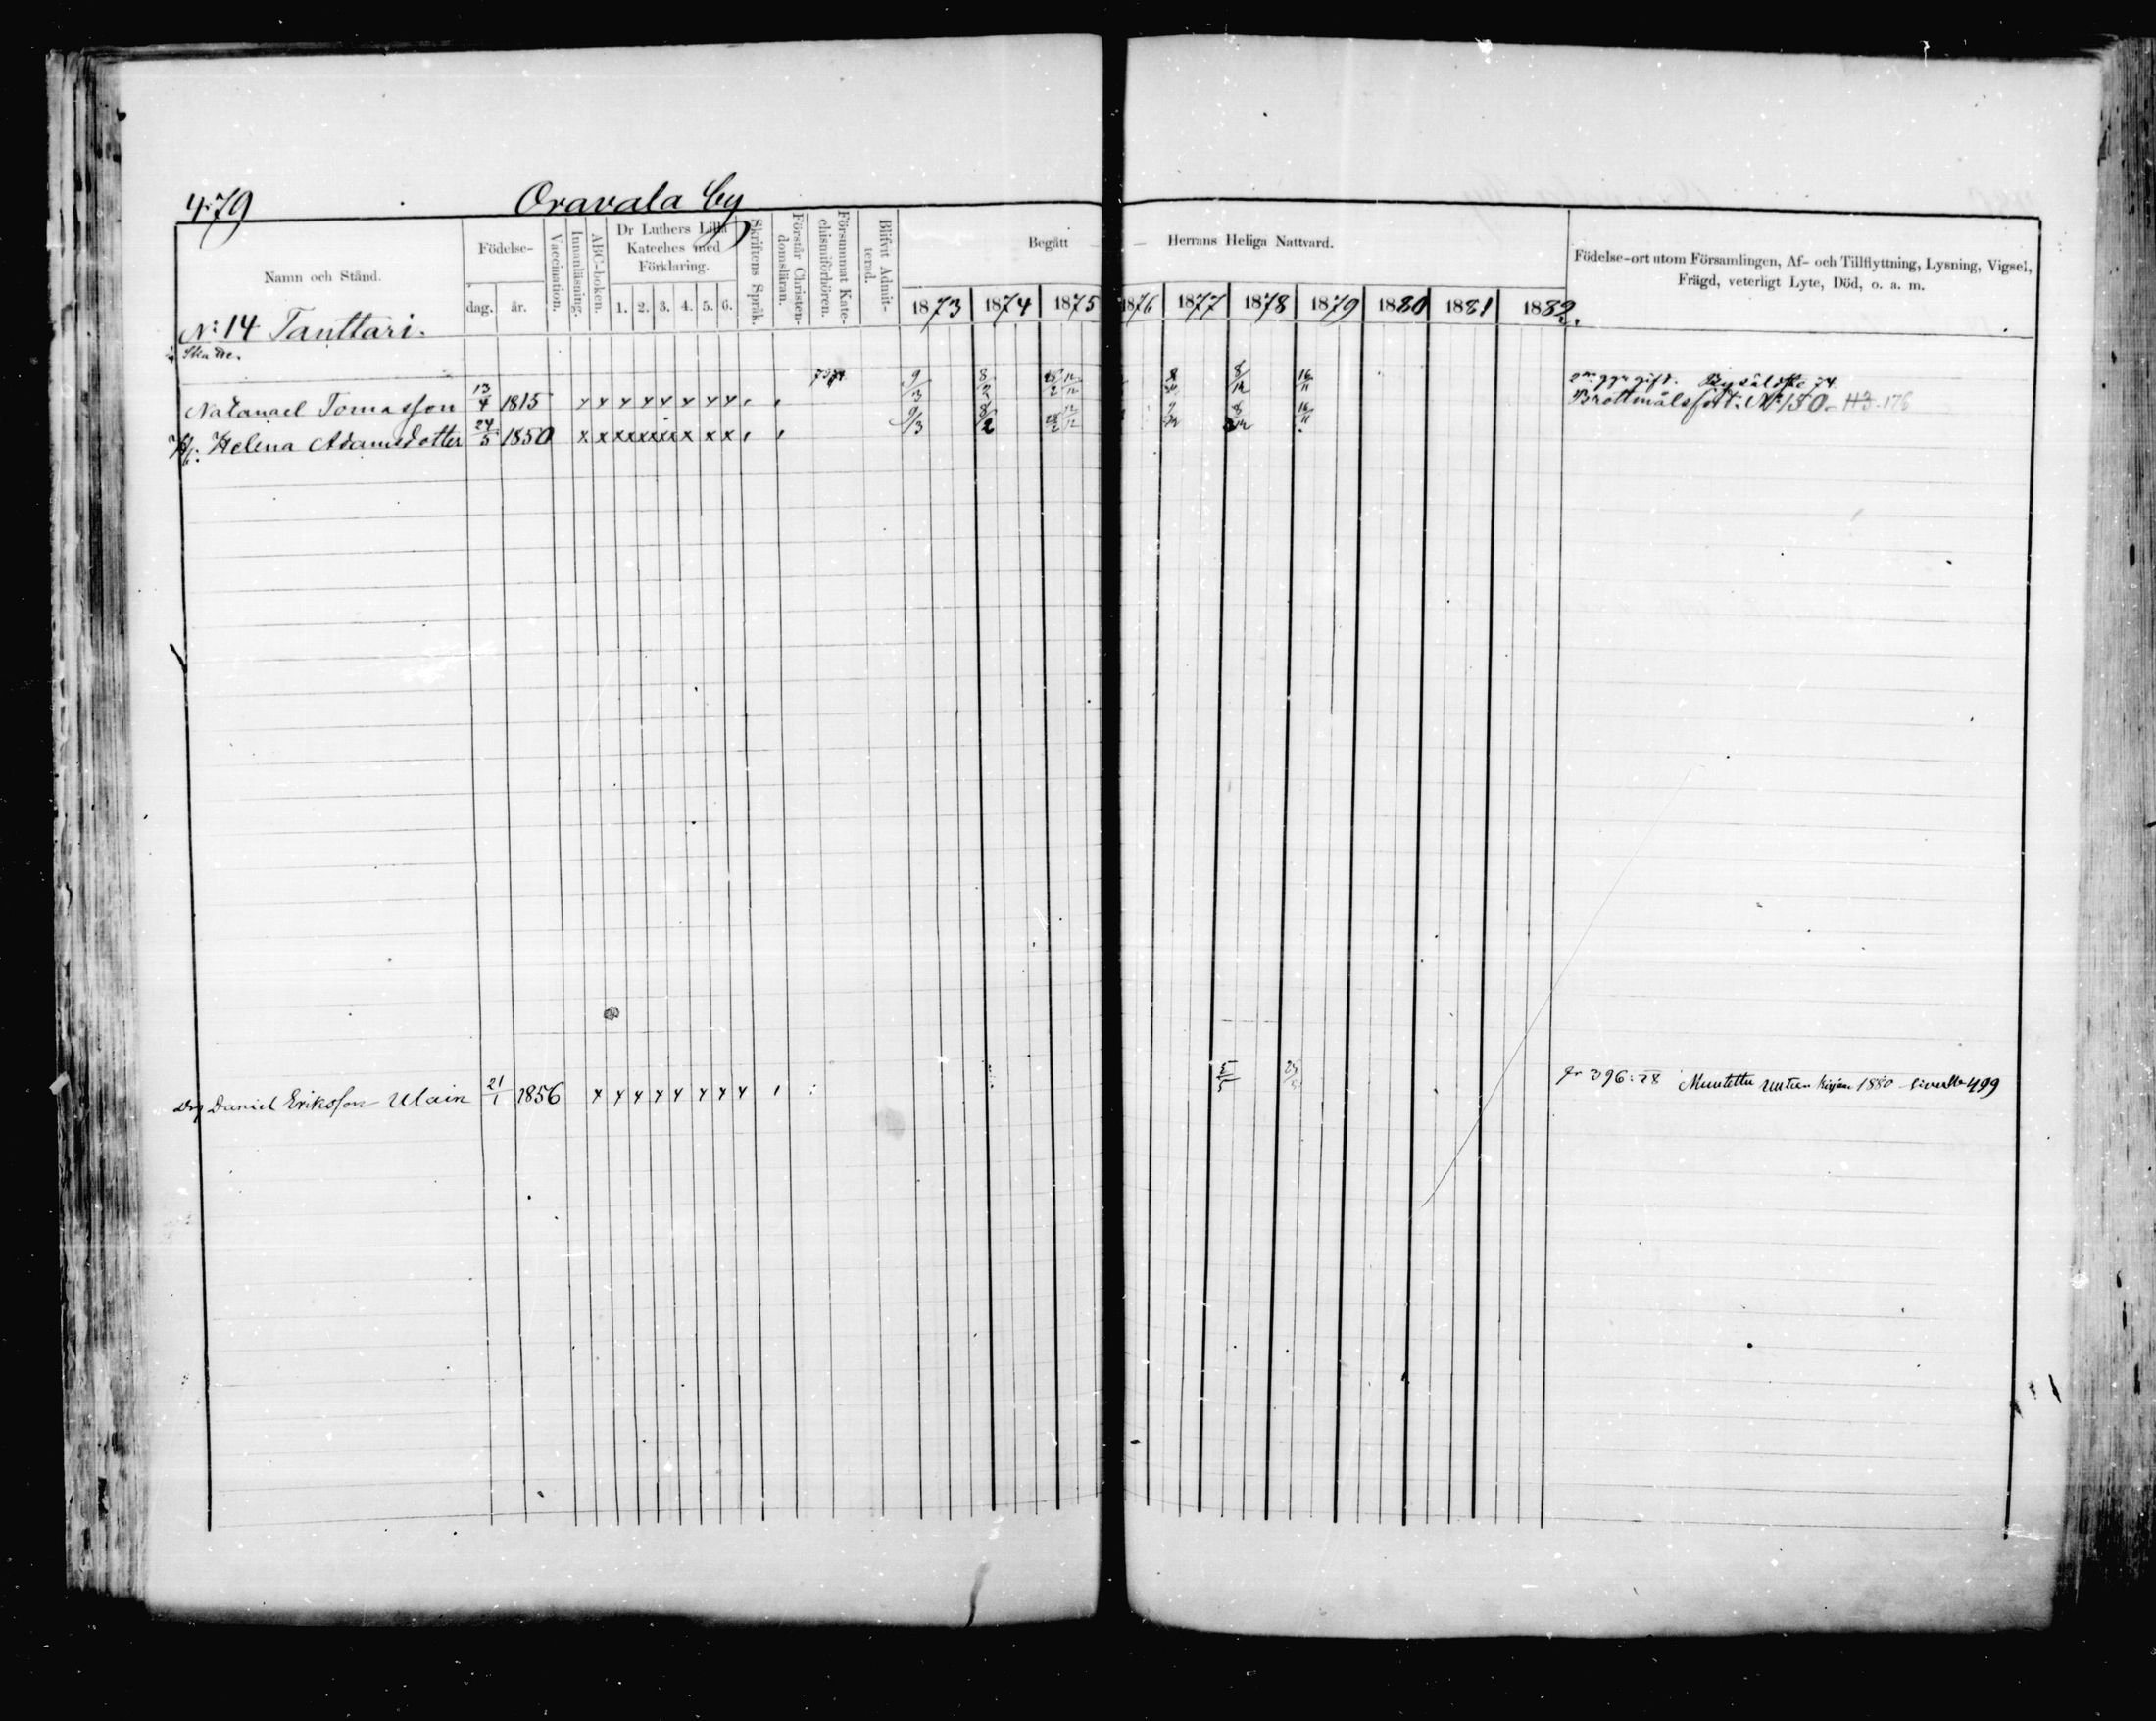 479 Oravala by
Namn och Stånd.
Födelse-
dag. år.
Vaccination.
Innanläsning.
ABC-boken.
Dr Luthers Lilla
Kateches med
Förklaring.
1. 2. 3. 4. 5. 6.
Skriftens Språk.
Förstår Christen-
domsläran.
Försummat Kate-
chismiförhören.
Blifvit Admit-
terad.
Begått Herrans Heliga Nattvard.
1873 1874 1875 1876 1877 1878 1879 1880 1881 1882.
Födelse-ort utom Församlingen, Af- och Tillflyttning, Lysning, Vigsel,
Frägd, veterligt Lyte, Död, o. a. m.
N: 14 Tanttari.
Natanael Tomasson 13/4 1815 x x x x x x x x 9/3 16/11 gift. 74
H: Helena Adamsdotter 24/5 1850 x x x x x x x x x x 9/3 8/2 16/11 Brottmålsfört. N: 150
Drg Daniel Eriksson Ulain 21/1 1856 x x x x x x x x 5/5 fr 396: 78 Muutettu uuteen kirjaan 1880 sivulle 499